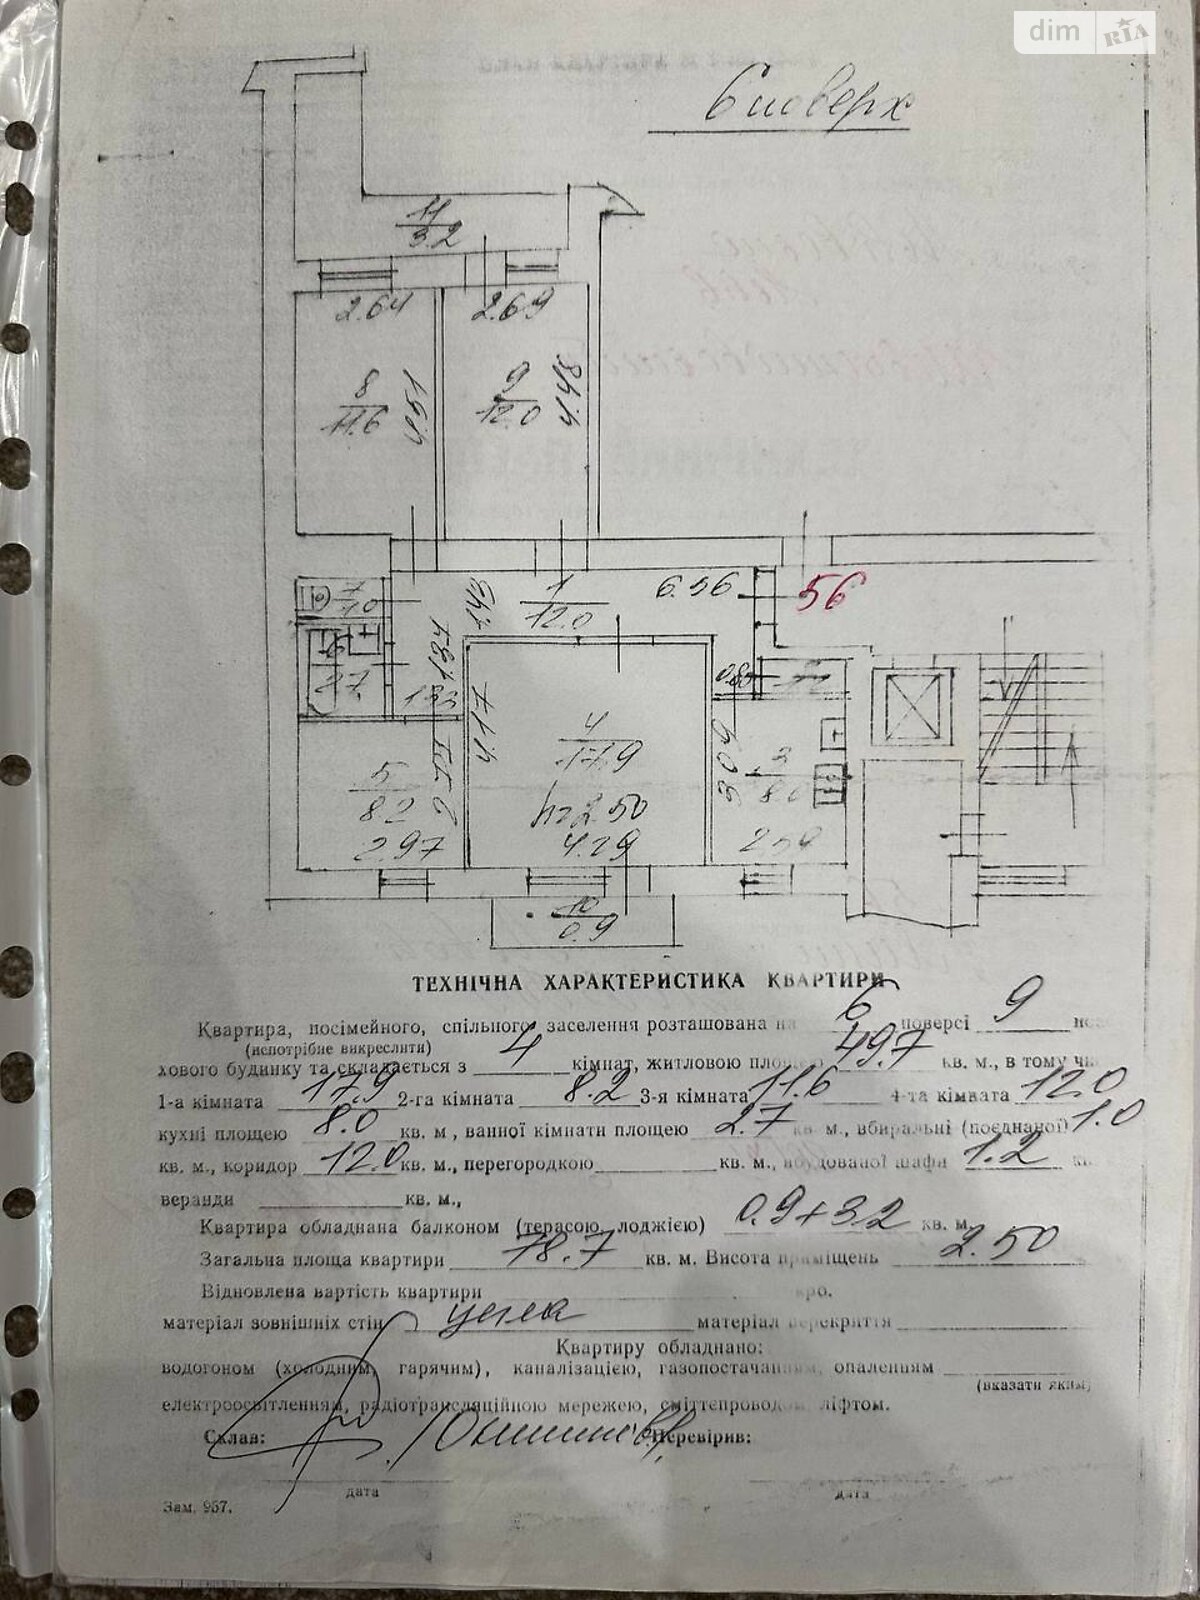 dim RIA
6 поверх
11
3.2
2.64
2.69
8
11.6
4.51
9
12.0
4.48
7
1.0
1
12.0
6.56
56
6
2.7
1.84
1.33
0.80
2
4
17.9
4.17
h=2.50
4.29
3
8.0
3.09
2.59
5
8.2
2.77
2.97
10
0.9
ТЕХНІЧНА ХАРАКТЕРИСТИКА КВАРТИРИ
Квартира, посімейного, спільного заселення розташована на 6 поверсі 9
(непотрібне викреслити)
хового будинку та складається з 4 кімнат, житловою площею 49.7 кв. м., в тому
1-а кімната 17.9 2-га кімната 8.2 3-я кімната 11.6 4-та кімната 12.0
кухні площею 8.0 кв. м., ванної кімнати площею 2.7 кв. м., вбиральні (поєднаної) 1.0
кв. м., коридор 12.0 кв. м., перегородкою кв. м., вбудованої шафи 1.2
веранди кв. м.,
Квартира обладнана балконом (терасою, лоджією) 0.9+3.2 кв. м.
Загальна площа квартири 78.7 кв. м. Висота приміщень 2.50
Відновлена вартість квартири крб.
матеріал зовнішніх стін цегла матеріал перекриття
Квартиру обладнано:
водогоном (холодним, гарячим), каналізацією, газопостачанням, опаленням
(вказати яким)
електроосвітленням, радіотрансляційною мережею, сміттєпроводом, ліфтом.
Склав: Перевірив:
дата дата
Зам. 957.